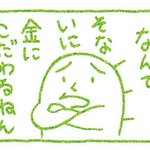 なんで
そない
に
金に
こだわるねん